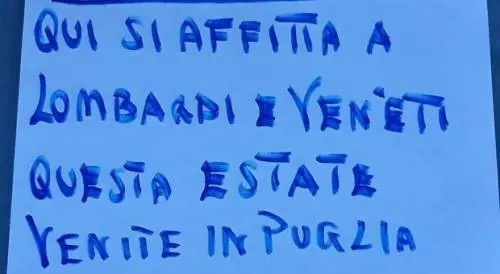 QUI SI AFFITTA A
LOMBARDI E VENETI
QUESTA ESTATE
VENITE IN PUGLIA